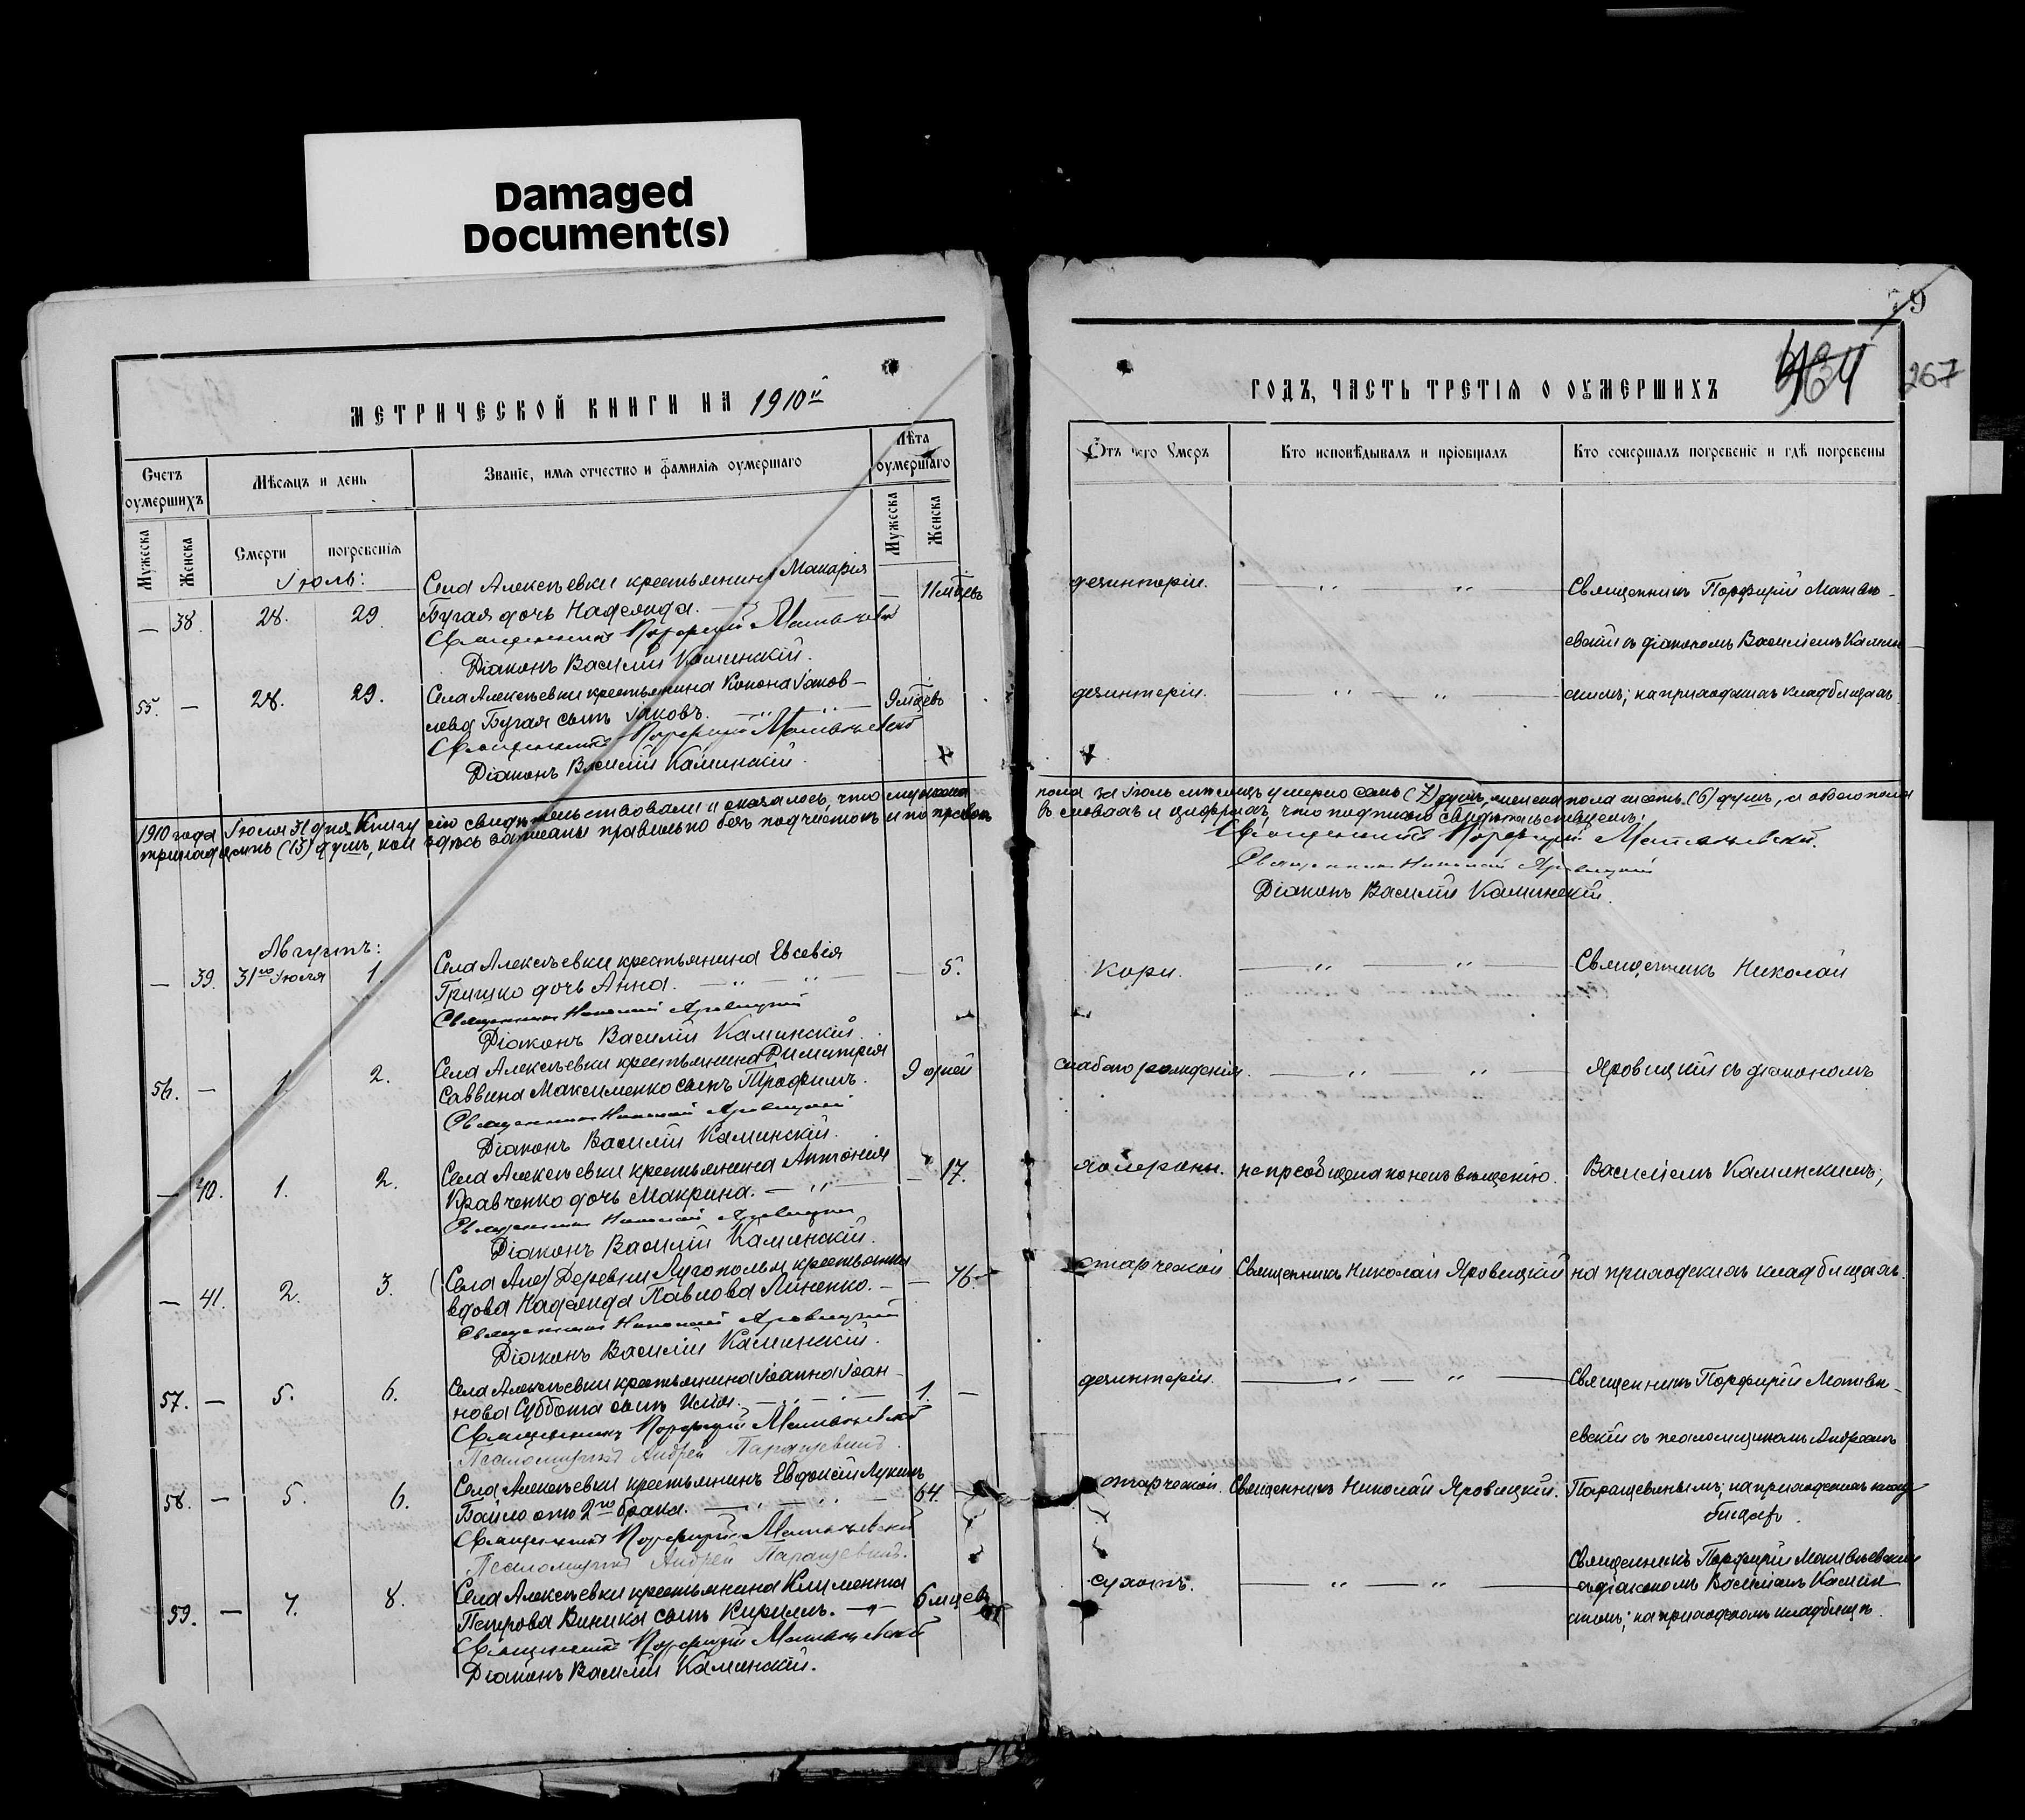 Damaged
Document(s)
МЕТРИЧЕСКОЙ КНИГИ НА 1910й
Счетъ оумершихъ
Мѣсяцъ и день
Званіе, имя отчество и фамилія оумершаго
Лѣта оумершаго
Мужеска
Женска
Смерти
погребенія
Мужеска
Женска
Іюль:
— 38. 28. 29. Села Алексѣевки крестьянина Макарія — 11 мѣсц.
Бугая дочь Надежда.
Священникъ Порфирій Матвѣевскій
Діаконъ Василій Каминскій.
55. — 28. 29. Села Алексѣевки крестьянина Конона Іаков- 9 мѣсц.
лева Бугая сынъ Іаковъ.
Священникъ Порфирій Матвѣевскій
Діаконъ Василій Каминскій.
1910 года Іюля 31 дня Книгу сію свидѣтельствовали и оказалось, что мужеска
тринадцать (13) душъ, кои здѣсь записаны правильно безъ подчистокъ и поправокъ
Августъ:
— 39. 31го Іюля 1. Села Алексѣевки крестьянина Евсевія — 5.
Гришко дочь Анна.
Священникъ Николай Яровицкій
Діаконъ Василій Каминскій.
56. — 1. 2. Села Алексѣевки крестьянина Димитрія 9 дней
Саввина Максименко сынъ Трофимъ.
Священникъ Николай Яровицкій
Діаконъ Василій Каминскій.
— 40. 1. 2. Села Алексѣевки крестьянина Антонія — 17.
Кравченко дочь Макрина.
Священникъ Николай Яровицкій
Діаконъ Василій Каминскій.
— 41. 2. 3. (Села Але) Деревни Лугополья крестьянка — 76.
вдова Надежда Павлова Линенко.
Священникъ Николай Яровицкій
Діаконъ Василій Каминскій.
57. — 5. 6. Села Алексѣевки крестьянина Іоанна Іоан- 1. —
нова Суббота сынъ Илія.
Священникъ Порфирій Матвѣевскій
Псаломщикъ Андрей Паращевинъ.
58. — 5. 6. Села Алексѣевки крестьянинъ Евдокій Лукинъ 64. —
Байло отъ 2го брака.
Священникъ Порфирій Матвѣевскій
Псаломщикъ Андрей Паращевинъ.
59. — 7. 8. Села Алексѣевки крестьянина Климента 6 мѣсц.
Петрова Виника сынъ Кириллъ.
Священникъ Порфирій Матвѣевскій
Діаконъ Василій Каминскій.
79
267
ГОДЪ, ЧАСТЬ ТРЕТІЯ О ОУМЕРШИХЪ
Отъ чего умеръ
Кто исповѣдывалъ и пріобщалъ
Кто совершалъ погребеніе и гдѣ погребены
дезинтеріи. Священникъ Порфирій Матвѣ-
евскій съ діакономъ Василіемъ Камин
дезинтеріи. скимъ; на приходскихъ кладбищахъ
пола за Іюль мѣсяцъ умерло семь (7) душъ, женска пола шесть (6) душъ, а обоего пола
въ словахъ и цифрахъ, что подписью свидѣтельствуемъ:
Священникъ Порфирій Матвѣевскій.
Священникъ Николай Яровицкій
Діаконъ Василій Каминскій.
Кори. Священникъ Николай
слабаго рожденія. Яровицкій съ діакономъ
холераны. не пріобщена по неизвѣщенію. Василіемъ Каминскимъ;
старческой Священникъ Николай Яровицкій на приходскихъ кладбищахъ.
дезинтеріи. Священникъ Порфирій Матвѣ-
евскій съ псаломщикомъ Андреемъ
старческой. Священникъ Николай Яровицкій. Паращевинымъ; на приходскихъ клад-
бищахъ.
Священникъ Порфирій Матвѣевскій
сухотъ. съ діакономъ Василіемъ Камин-
скимъ; на приходскомъ кладбищѣ.